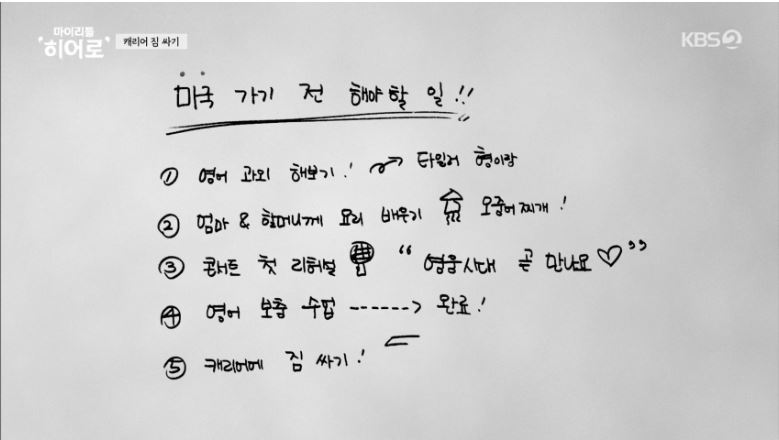 마이 리틀
'히어로'
캐리어 짐 싸기
KBS2
미국 가기 전 해야할 일!!
① 영어 과외 해보기! → 타일러 형이랑
② 엄마 & 할머니께 요리 배우기 오징어찌개!
③ 콘서트 첫 리허설 “영웅시대 곧 만나요♡”
④ 영어 보충 수업 ------> 완료!
⑤ 캐리어에 짐 싸기!